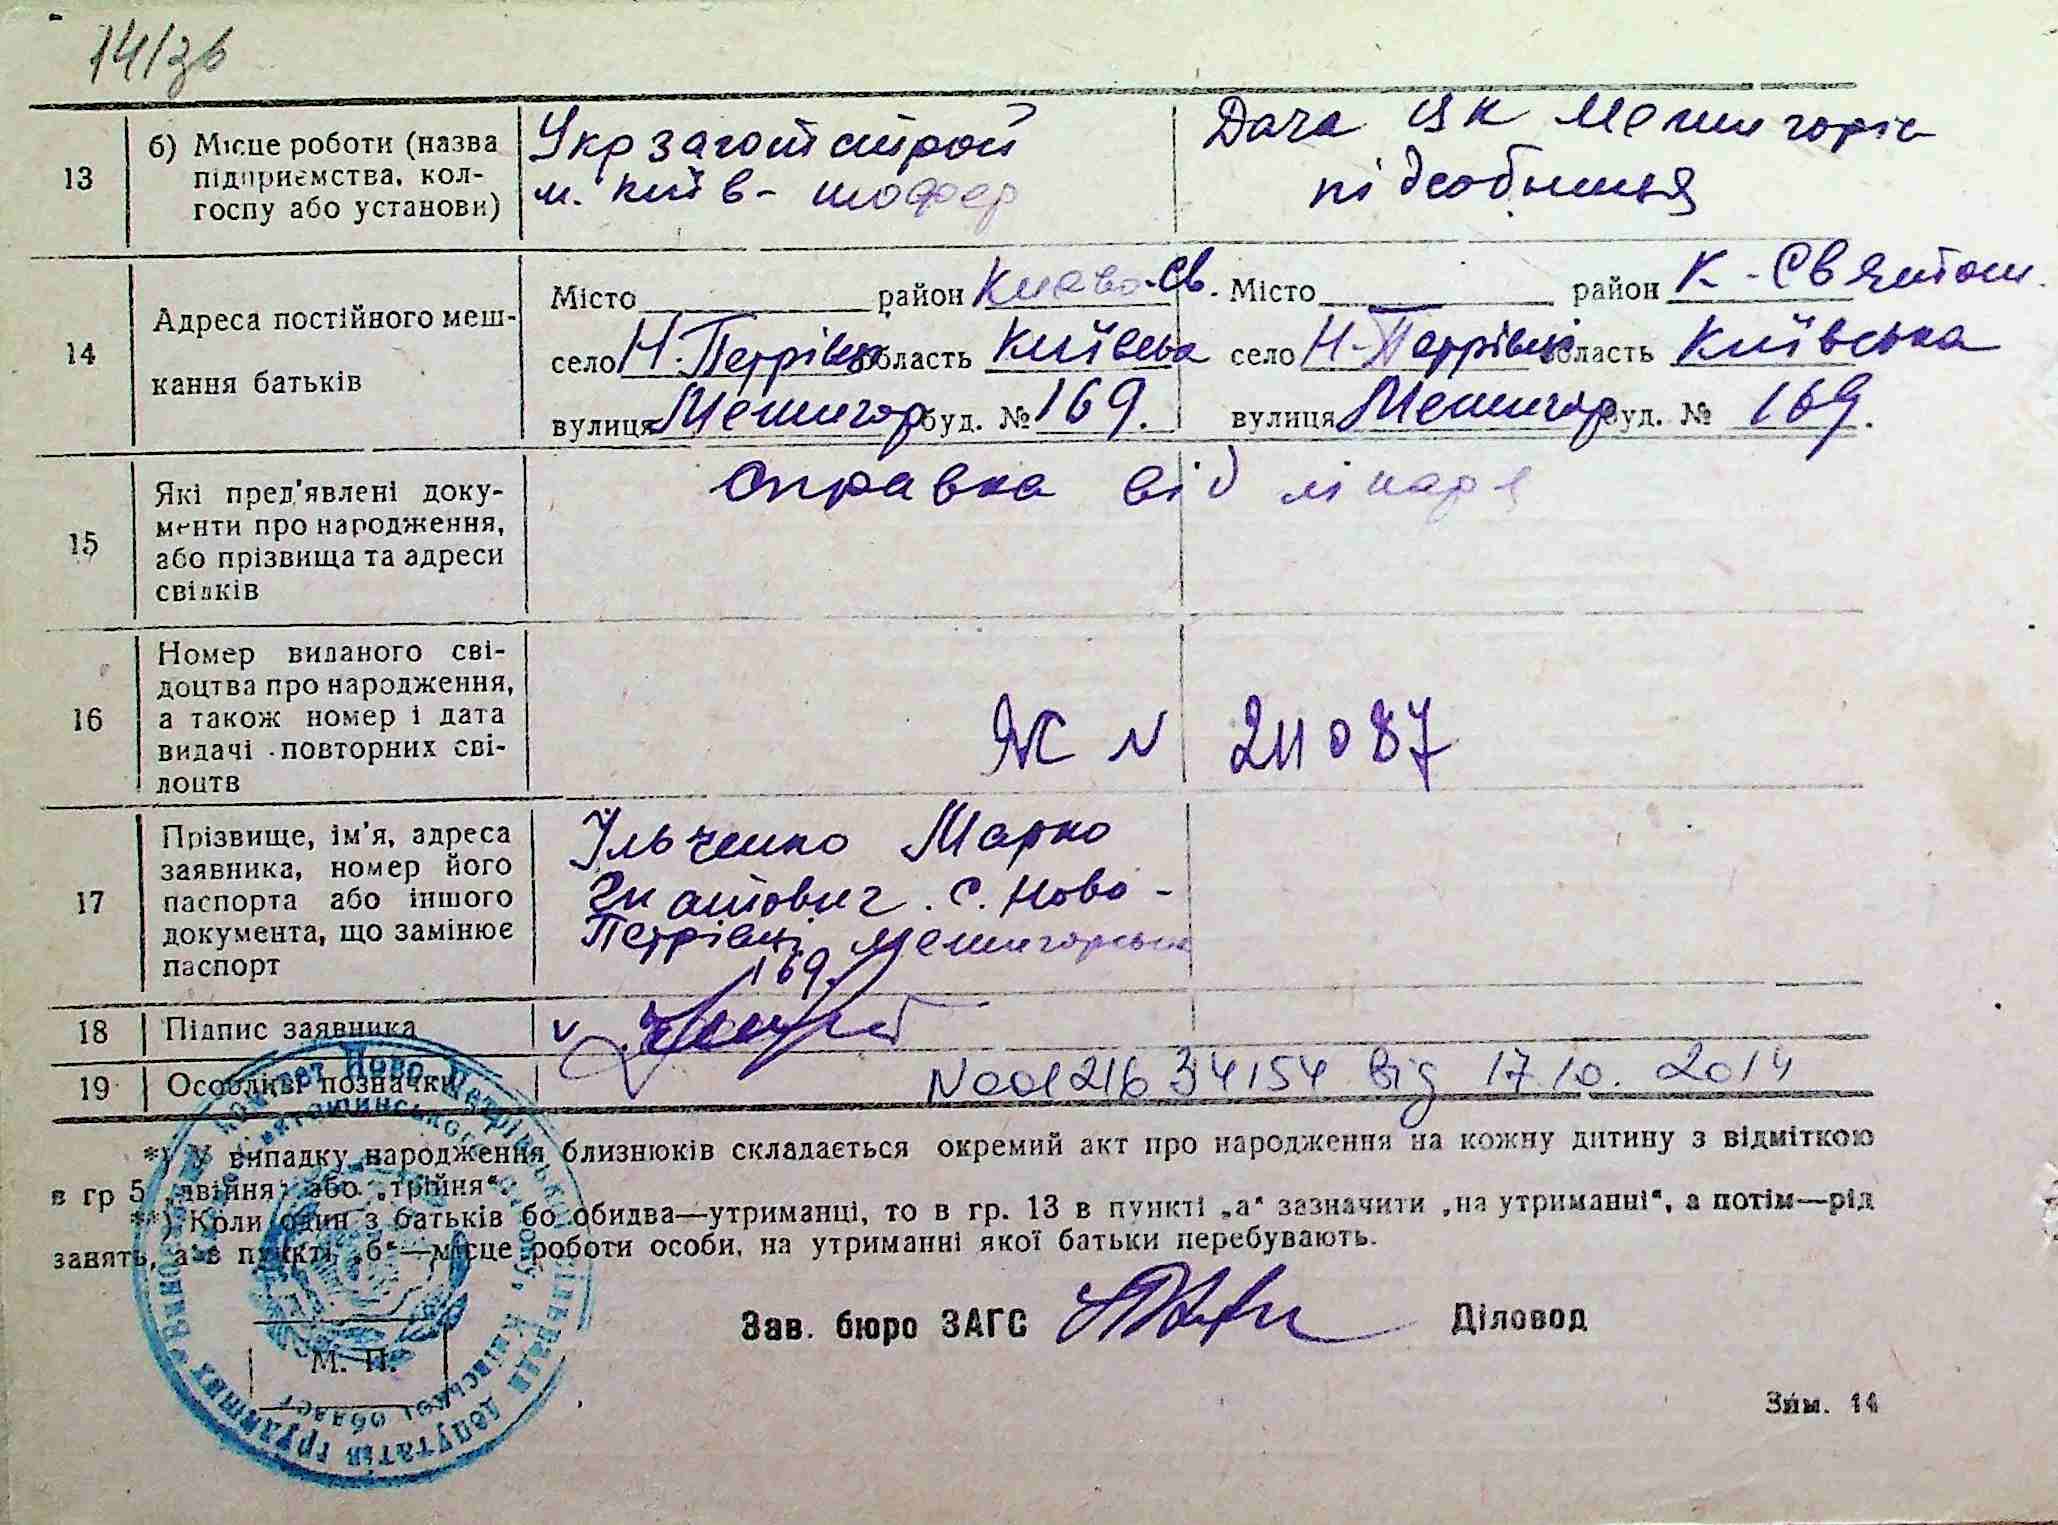 14/зв
13 б) Місце роботи (назва підприємства, колгоспу або установи)
Укрзаготстрой
м. Київ - шофер
Дача ЦК Межигоріє
підсобниця
14 Адреса постійного мешкання батьків
Місто район Києво-Св. Місто район К-Святош.
село Н-Петрівці область Київська село Н-Петрівці область Київська
вулиця Межигор буд. № 169. вулиця Межигор буд. № 169.
15 Які пред'явлені документи про народження, або прізвища та адреси свідків
справка від лікаря
16 Номер виданого свідоцтва про народження, а також номер і дата видачі повторних свідоцтв
ЯС N 211087
17 Прізвище, ім'я, адреса заявника, номер його паспорта або іншого документа, що замінює паспорт
Ільченко Марко
Гнатович. с. Ново-
Петрівці Межигорська
169.
18 Підпис заявника v
19 Особливі позначки N00121634154 від 17.10.2014
*) У випадку народження близнюків складається окремий акт про народження на кожну дитину з відміткою
в гр 5 „двійня“ або „трійня“.
**) Коли один з батьків або обидва—утриманці, то в гр. 13 в пункті „а“ зазначити „на утриманні“, а потім—рід
занять, а в пункті „б“—місце роботи особи, на утриманні якої батьки перебувають.
Зав. бюро ЗАГС Діловод
М. П.
Київської області
депутатів трудящих
Зам. 14